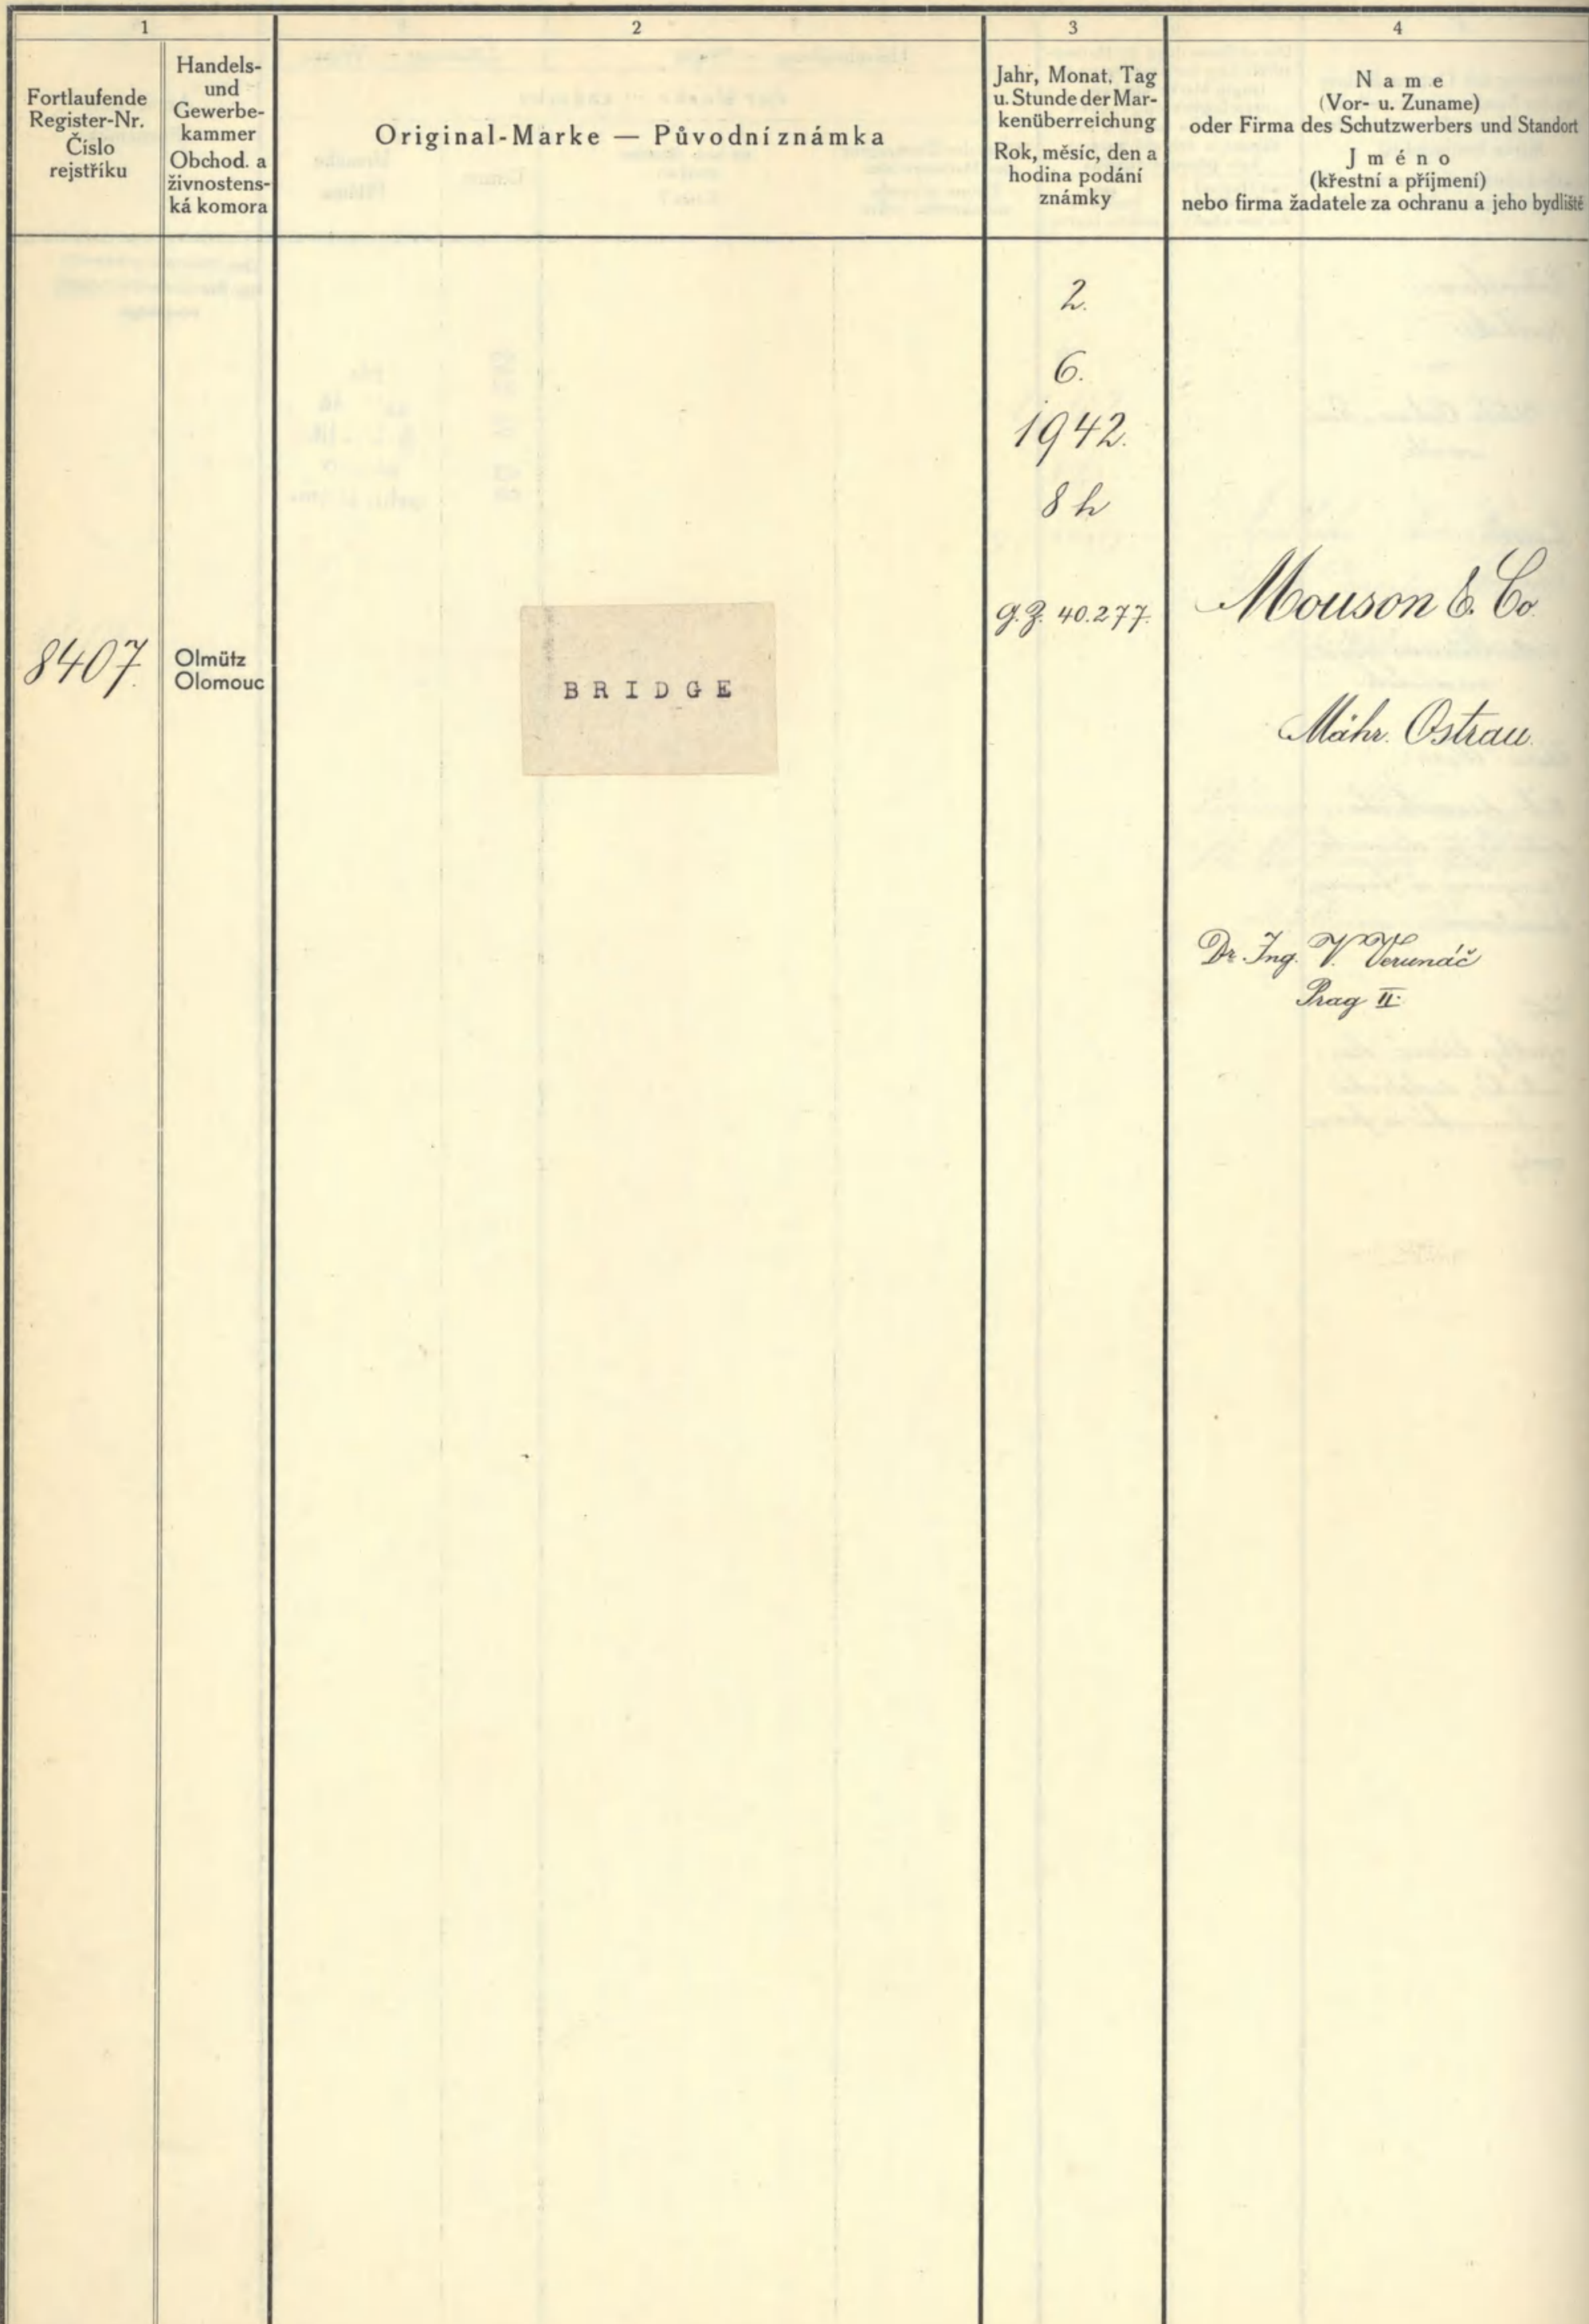 1
2
3
4
Fortlaufende
Register-Nr.
Číslo
rejstříku
Handels-
und
Gewerbe-
kammer
Obchod. a
živnostens-
ká komora
Original-Marke — Původní známka
Jahr, Monat, Tag
u. Stunde der Mar-
kenüberreichung
Rok, měsíc, den a
hodina podání
známky
Name
(Vor- u. Zuname)
oder Firma des Schutzwerbers und Standort
Jméno
(křestní a příjmení)
nebo firma žadatele za ochranu a jeho bydliště
2.
6.
1942.
8 h
G. Z. 40.277.
8407.
Olmütz
Olomouc
BRIDGE
Mouson & Co.
Mähr. Ostrau.
Dr. Ing. V. Verunáč
Prag II.